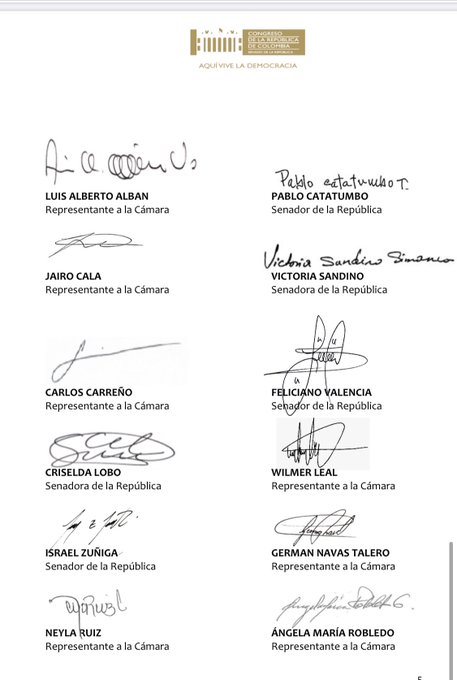 CONGRESO
DE LA REPÚBLICA
DE COLOMBIA
SENADO DE LA REPÚBLICA
AQUÍ VIVE LA DEMOCRACIA
LUIS ALBERTO ALBAN
Representante a la Cámara
Pablo catatumbo T.
PABLO CATATUMBO
Senador de la República
JAIRO CALA
Representante a la Cámara
Victoria Sandino Simanca
VICTORIA SANDINO
Senadora de la República
CARLOS CARREÑO
Representante a la Cámara
FELICIANO VALENCIA
Senador de la República
CRISELDA LOBO
Senadora de la República
WILMER LEAL
Representante a la Cámara
ISRAEL ZUÑIGA
Senador de la República
GERMAN NAVAS TALERO
Representante a la Cámara
NEYLA RUIZ
Representante a la Cámara
ÁNGELA MARÍA ROBLEDO
Representante a la Cámara